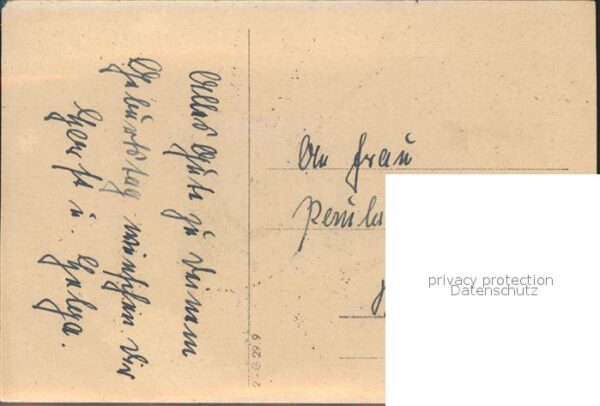 Alles Gute zu Deinem
Geburtstag wünschen Dir
Horst u. Helga.
An Frau
privacy protection
Datenschutz